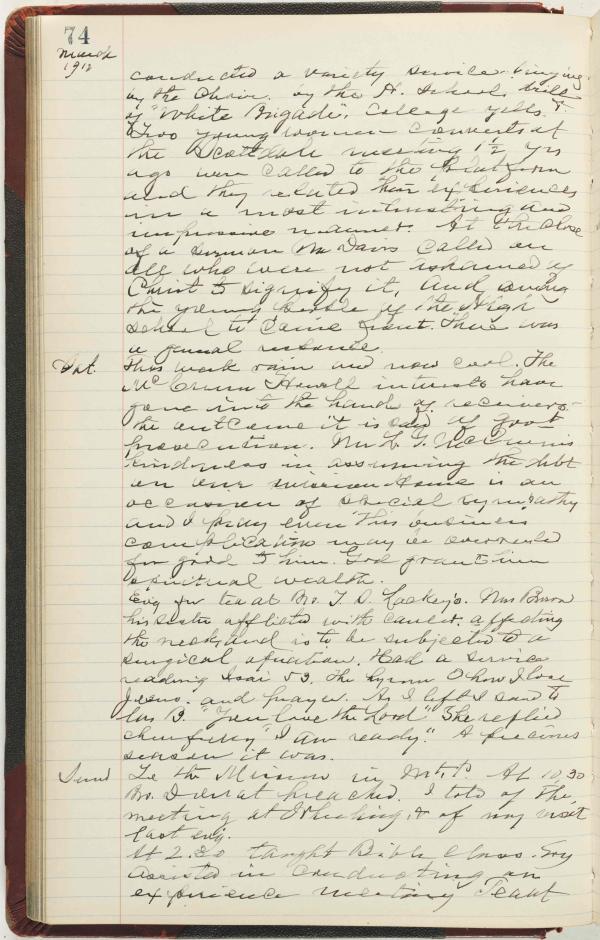 74
March
1912
conducted a variety service singing
by the choir, by the H. School, drill
of "White Brigade", College yells. &
Two young women converts at
the Scottdale meeting 1½ yrs
ago were called to the platform
and they related their experiences
in a most interesting and
impressive manner. At the close
of a sermon Mr Davis called on
all who were not ashamed of
Christ to signify it, and among
the young people of the High
school to come front. There was
a general response.
Sat. This week rain and now cool. The
McCrum Howell interests have
gone into the hands of receivers
the outcome it is said of govt
prosecution. Mr L. G. McCrum's
kindness in assuming the debt
on our mission Home is an
occasion of special sympathy
and I pray even this business
complication may be overruled
for good to him. God grant him
spiritual wealth.
Evg for tea at Mr. T. S. Lackey's. Mrs
his sister afflicted with cancer affecting
the neck and is to be subjected to a
surgical operation. Had a service
reading Isai 53. The hymn O how I love
Jesus. and prayer. As I left I said to
Mrs B. "You love the Lord" She replied
cheerfully "I am ready." A precious
season it was.
Sund To the Mission in Mt. P. At 10,30
Mr. preached. I told of the
meeting at Wheeling, & of my visit
last evg.
At 2.30 taught Bible Class. Evg
assisted in conducting an
experience meeting